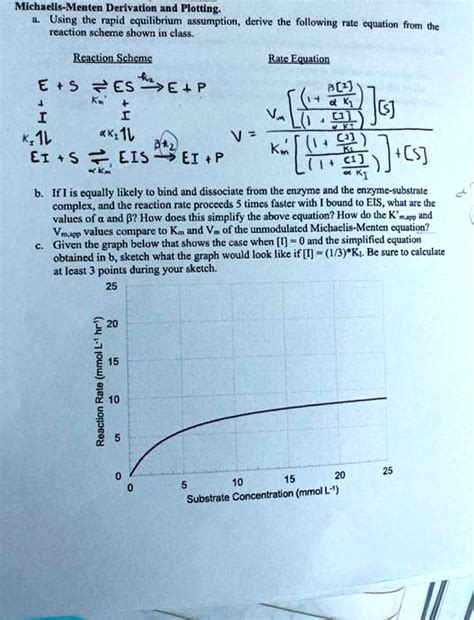 Michaelis-Menten Derivation and Plotting.
a. Using the rapid equilibrium assumption, derive the following rate equation from the
reaction scheme shown in class.
Reaction Scheme
Rate Equation
E + S ⇌ ES →k₂ E + P
Km'
+ +
I I
K_I ⇅ αK_I ⇅
EI + S ⇌ EIS →βk₂ EI + P
αKm'
V = Vm [ (1 + β[I]/αK_I) / (1 + [I]/αK_I) ] [S] / ( Km' [ (1 + [I]/K_I) / (1 + [I]/αK_I) ] + [S] )
b. If I is equally likely to bind and dissociate from the enzyme and the enzyme-substrate
complex, and the reaction rate proceeds 5 times faster with I bound to EIS, what are the
values of α and β? How does this simplify the above equation? How do the K'm,app and
Vm,app values compare to Km and Vm of the unmodulated Michaelis-Menten equation?
c. Given the graph below that shows the case when [I] = 0 and the simplified equation
obtained in b, sketch what the graph would look like if [I] = (1/3)*KI. Be sure to calculate
at least 3 points during your sketch.
25
20
15
10
5
0
Reaction Rate (mmol L⁻¹ hr⁻¹)
0 5 10 15 20 25
Substrate Concentration (mmol L⁻¹)